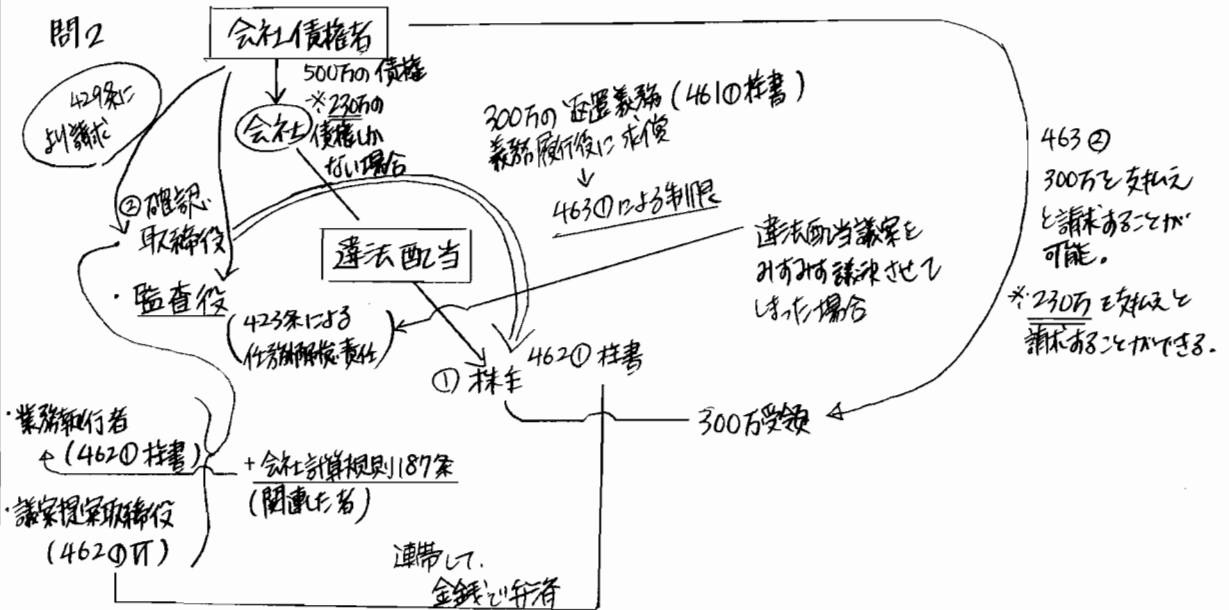 問2
会社債権者
429条に
より請求
500万の債権
※230万の
債権しか
ない場合
会社
300万の返還義務(461①柱書)
義務履行後に求償
463①による制限
463②
300万を支払え
と請求することが
可能。
※230万を支払えと
請求することができる。
②確認
・取締役
・監査役
(423条による
任務懈怠責任)
違法配当
違法配当議案を
みすみす議決させて
しまった場合
①株主
462①柱書
300万受領
・業務執行者
(462①柱書)
+会社計算規則187条
(関連した者)
・議案提案取締役
(462①Ⅵ)
連帯して、
金銭で弁済